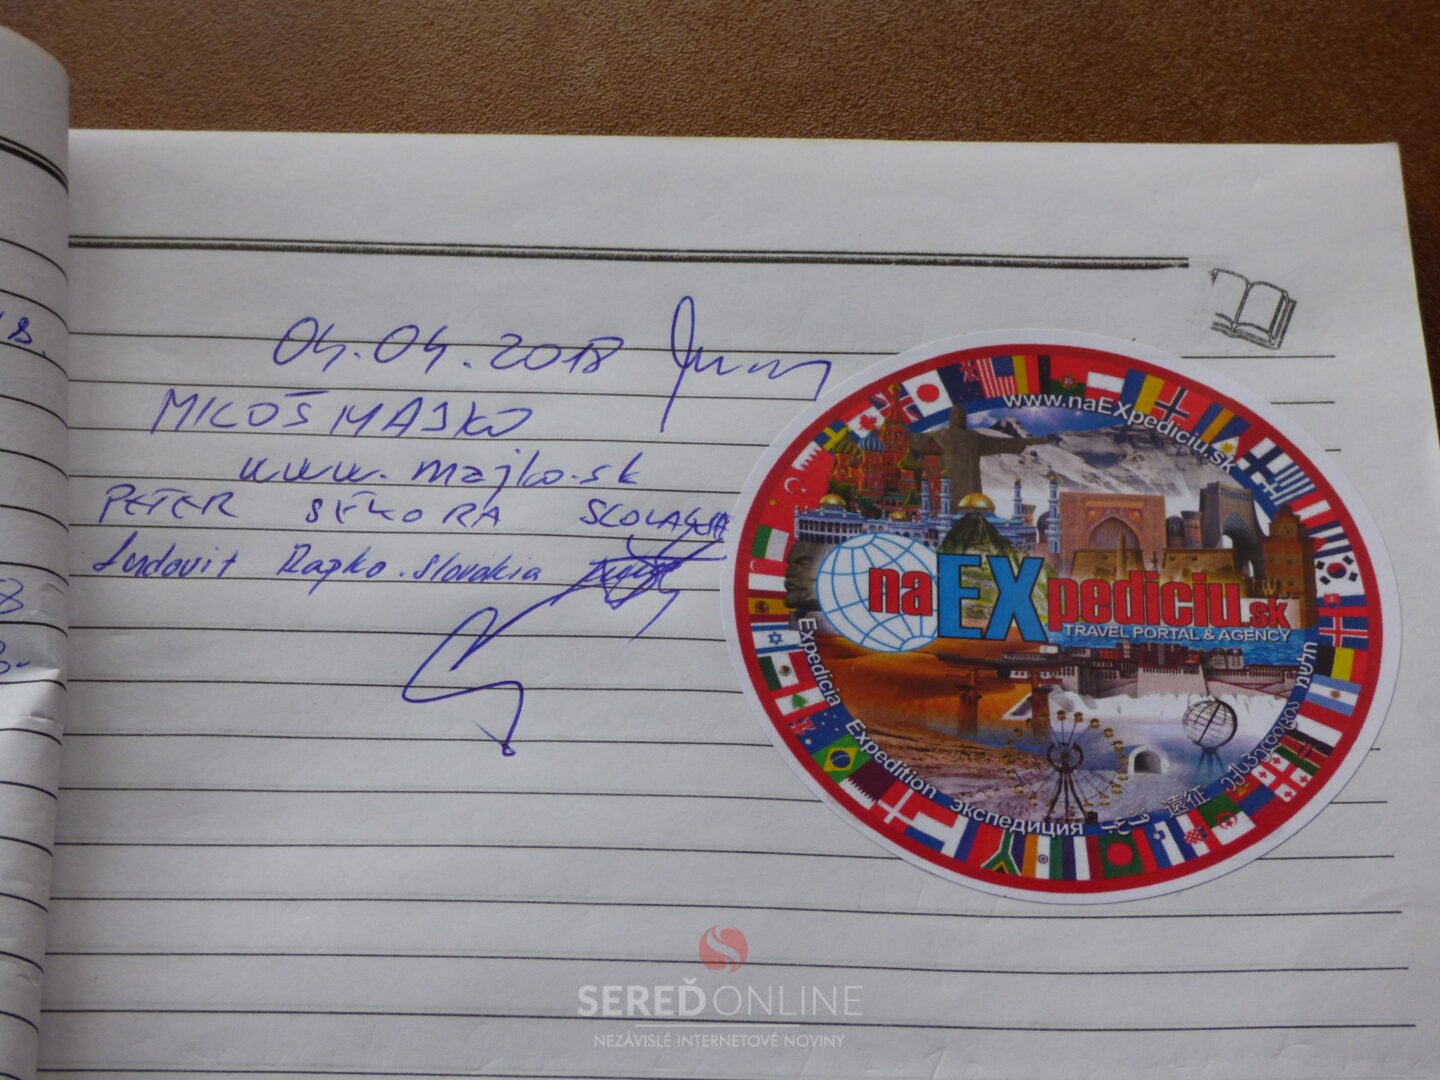 04.04.2018
MILOŠ MAJKO
www.majko.sk
PETER SÝKORA
Ludovit Rapko. Slovakia
www.naEXpediciu.sk
naEXpediciu.sk
TRAVEL PORTAL & AGENCY
Expedícia Expedition экспедиция 遠征
SEREĎONLINE
NEZÁVISLÉ INTERNETOVÉ NOVINY